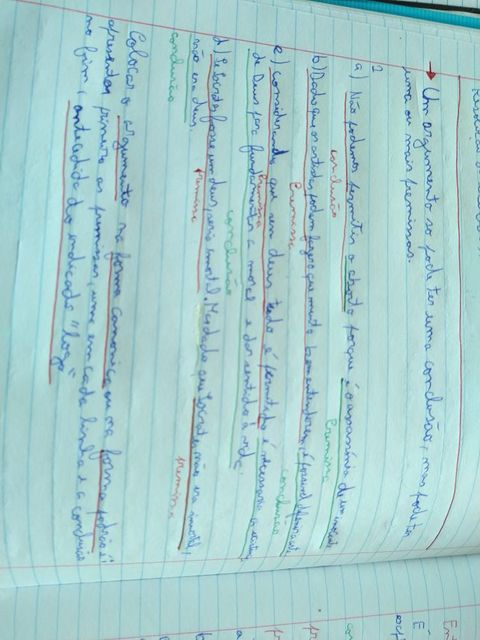 → Um argumento só pode ter uma conclusão, mas pode ter
uma ou mais premissas.
1
a) Não podemos permitir o aborto porque é o assassínio de um inocente
conclusão
Premissa
b) Dado que os artistas podem fazer o que muito bem entenderem, é
Premissa
conclusão
c) Considerando que sem deus tudo é permitido é necessário
Premissa
de Deus para fundamentar a moral e dar sentido à vida.
conclusão
d) Se Sócrates fosse um deus, seria imortal. Mas dado que Sócrates não era imortal,
premissa
premissa
não era deus.
conclusão
Colocar o argumento na forma canónica ou na forma padrão é:
apresentar primeiro as premissas, uma em cada linha e a conclusão
no fim, antecedida do indicador "logo"